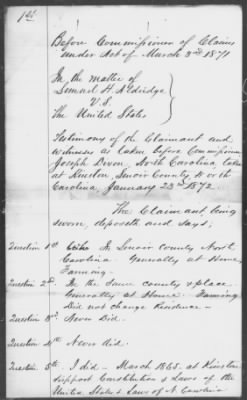 1st
Before Commissioner of Claims
under Act of March 3rd 1871
In the matter of
Lemuel H. Aldridge
V.S.
The United States
Testimony of the Claimant and
witnesses as taken before Commissioner
Joseph Dixon, North Carolina taken
at Kinston, Lenoir County North
Carolina January 23rd 1872.
The Claimant being
sworn, deposeth and says;
Question 1st In Lenoir County North
Carolina. Generally at Home,
Farming.
Question 2nd In the same county & place
Generally at Home. Farming
did not change Residence.
Question 3rd Never Did.
Question 4th Never did.
Question 5th I did - March 1865. at Kinston
support Constitution & Laws of the
United States & Laws of N. Carolina